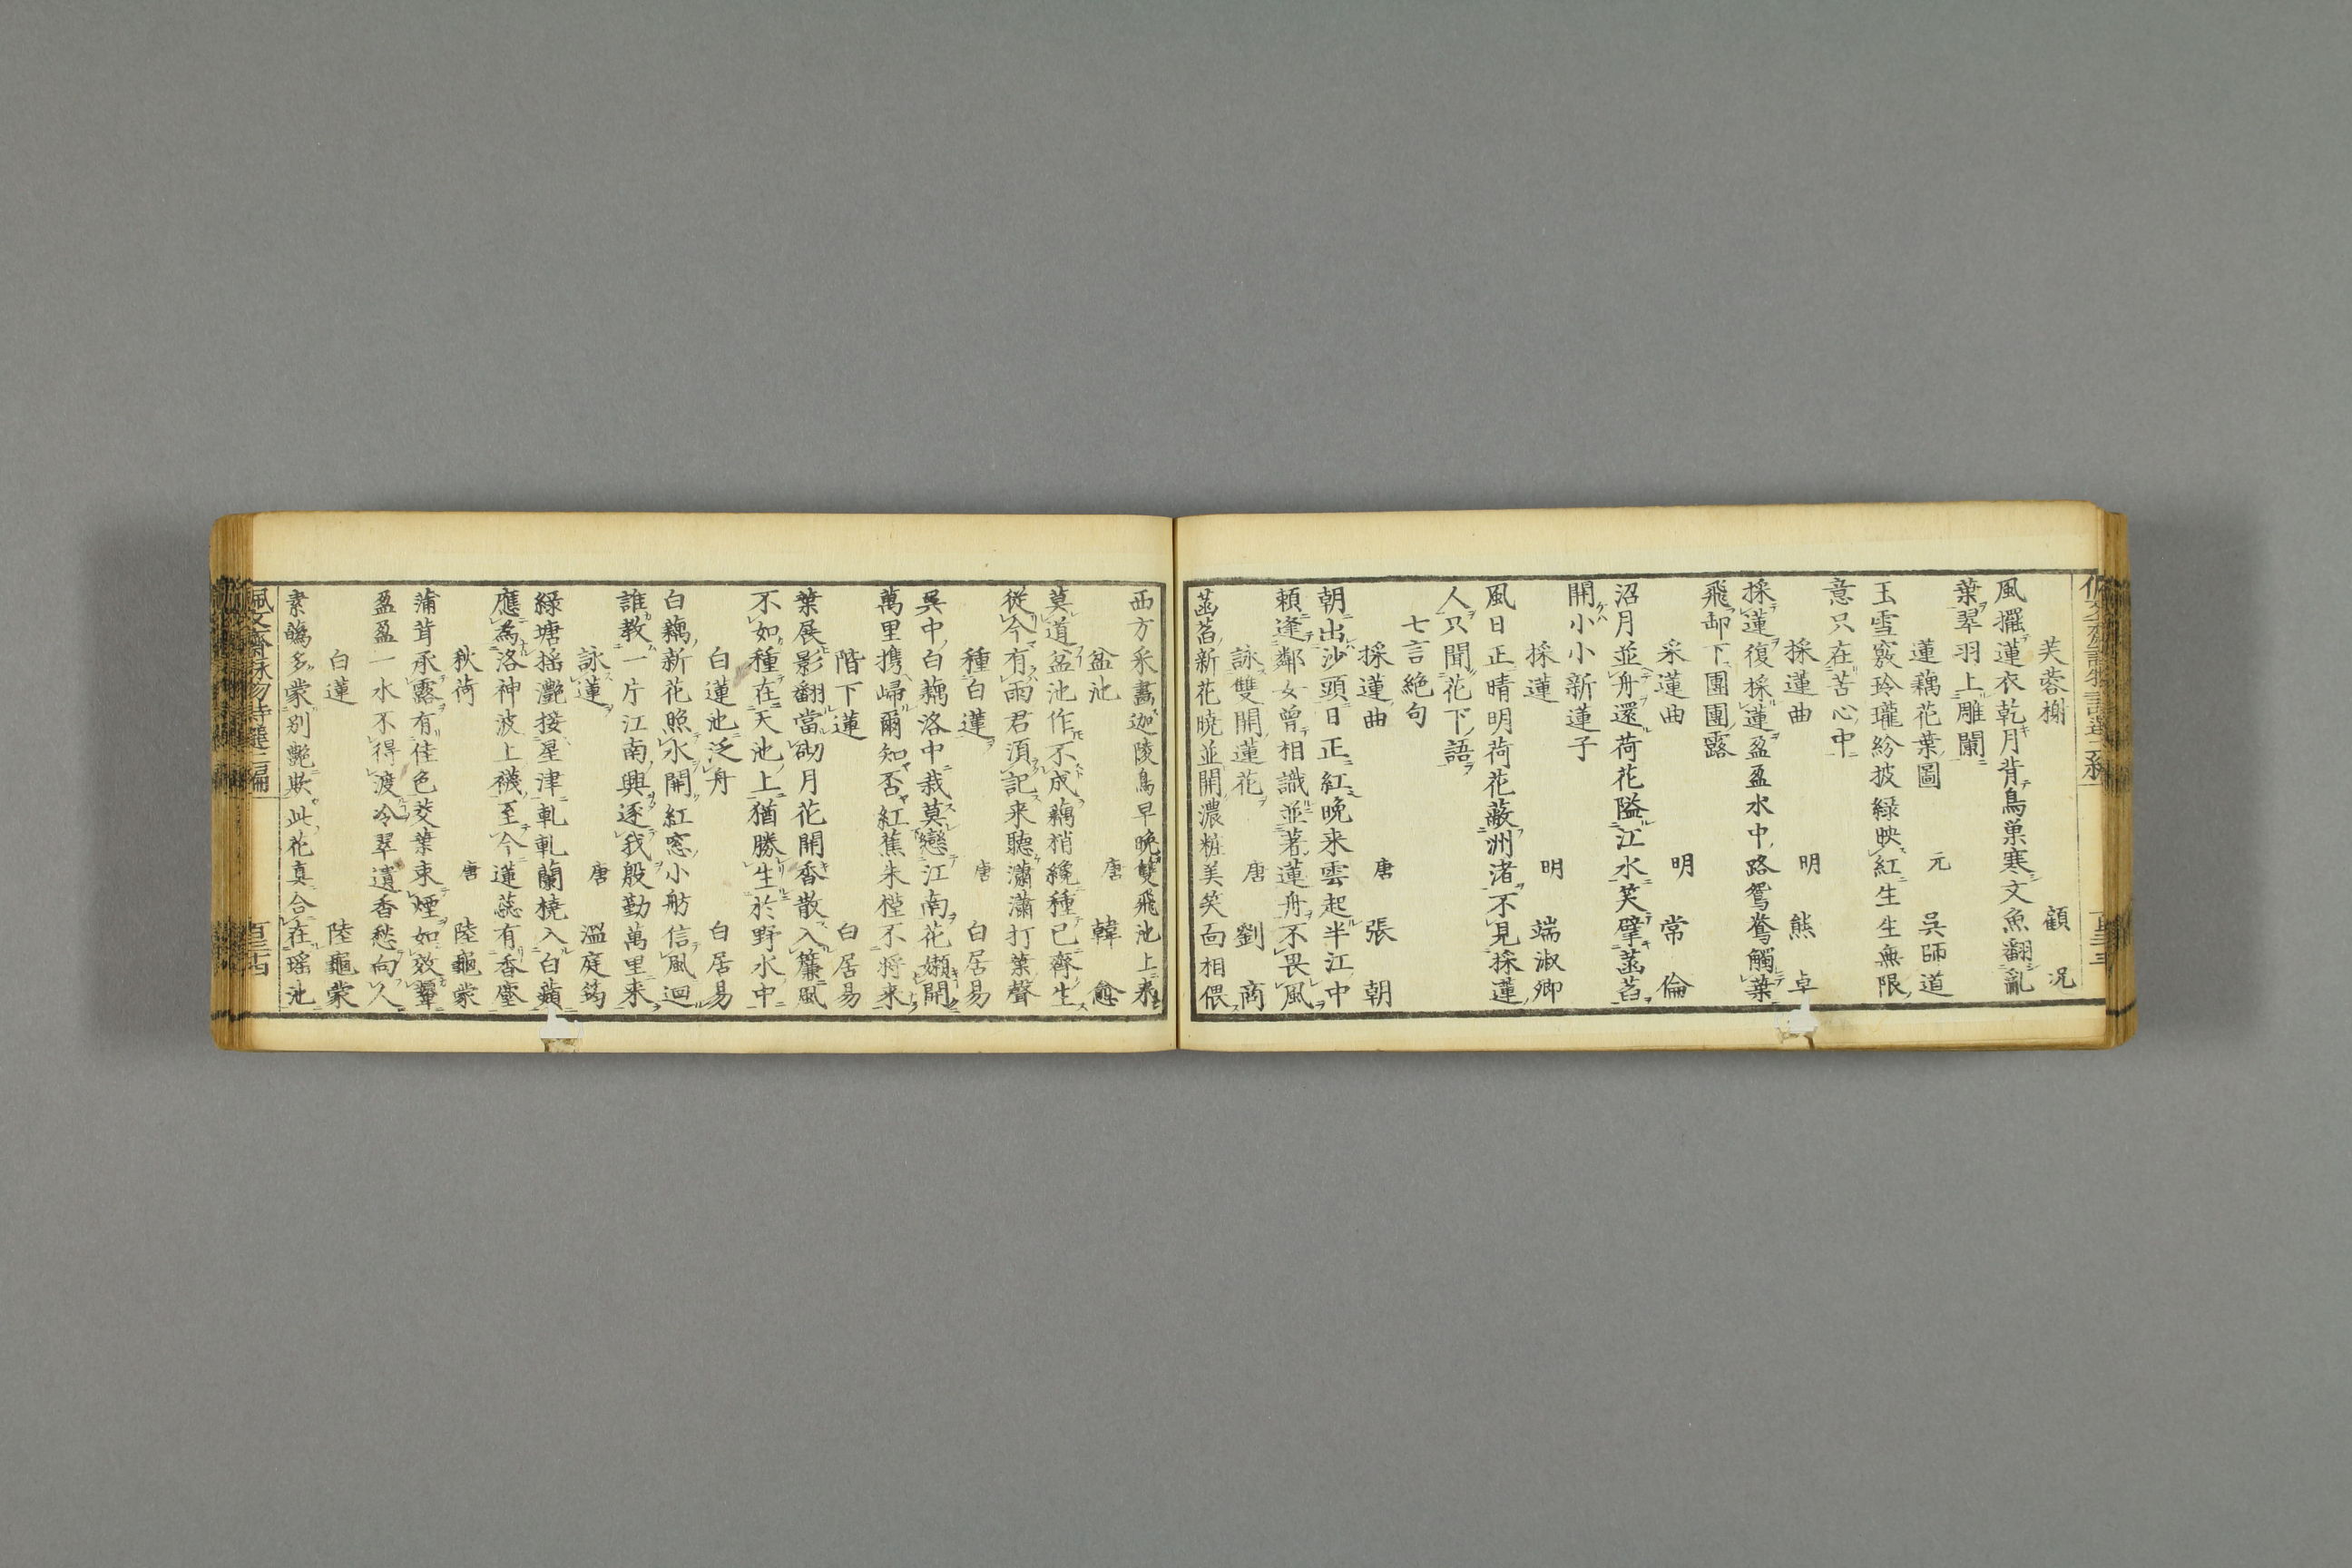 芙蓉榭　顧況
風擺蓮衣乾月背鳥巢寒文魚翻亂
葉翠羽上雕闌
蓮藕花葉圖　元　吳師道
玉雪竅玲瓏紛披緑映紅生生無限
意只在苦心中
採蓮曲　明　熊卓
採蓮復採蓮盈盈水中路鴛鴦觸葉
飛却下團團露
采蓮曲　明　常倫
沼月並舟還荷花隘江水笑擘菡萏
開小小新蓮子
採蓮　明　端淑卿
風日正晴明荷花蔽洲渚不見採蓮
人只聞花下語
七言絶句
採蓮曲　唐　張朝
朝出沙頭日正紅晩来雲起半江中
頼逢鄰女曾相識並著蓮舟不畏風
詠雙開蓮花　唐　劉商
菡萏新花曉並開濃粧美笑面相偎
西方采畫迦陵鳥早晩雙飛池上來
盆池　唐　韓愈
莫道盆池作不成藕梢纔種已齊生
從今有雨君須記来聽瀟瀟打葉聲
種白蓮　唐　白居易
吳中白藕洛中栽莫戀江南花嬾開
萬里携歸爾知否紅蕉朱槿不将来
階下蓮　白居易
葉展影翻當砌月花開香散入簾風
不如種在天池上猶勝生於野水中
白蓮池泛舟　白居易
白藕新花照水開紅窓小舫信風迴
誰教一片江南興逐我殷勤萬里来
詠蓮　唐　溫庭筠
緑塘搖灔接星津軋軋蘭橈入白蘋
應為洛神波上襪至今蓮蕊有香塵
秋荷　唐　陸龜蒙
蒲茸承露有佳色茭葉束煙如效顰
盈盈一水不得渡冷翠遺香愁向人
白蓮　陸龜蒙
素蘤多蒙别艶欺此花真合在瑶池
佩文齋詠物詩選二編　百三十四